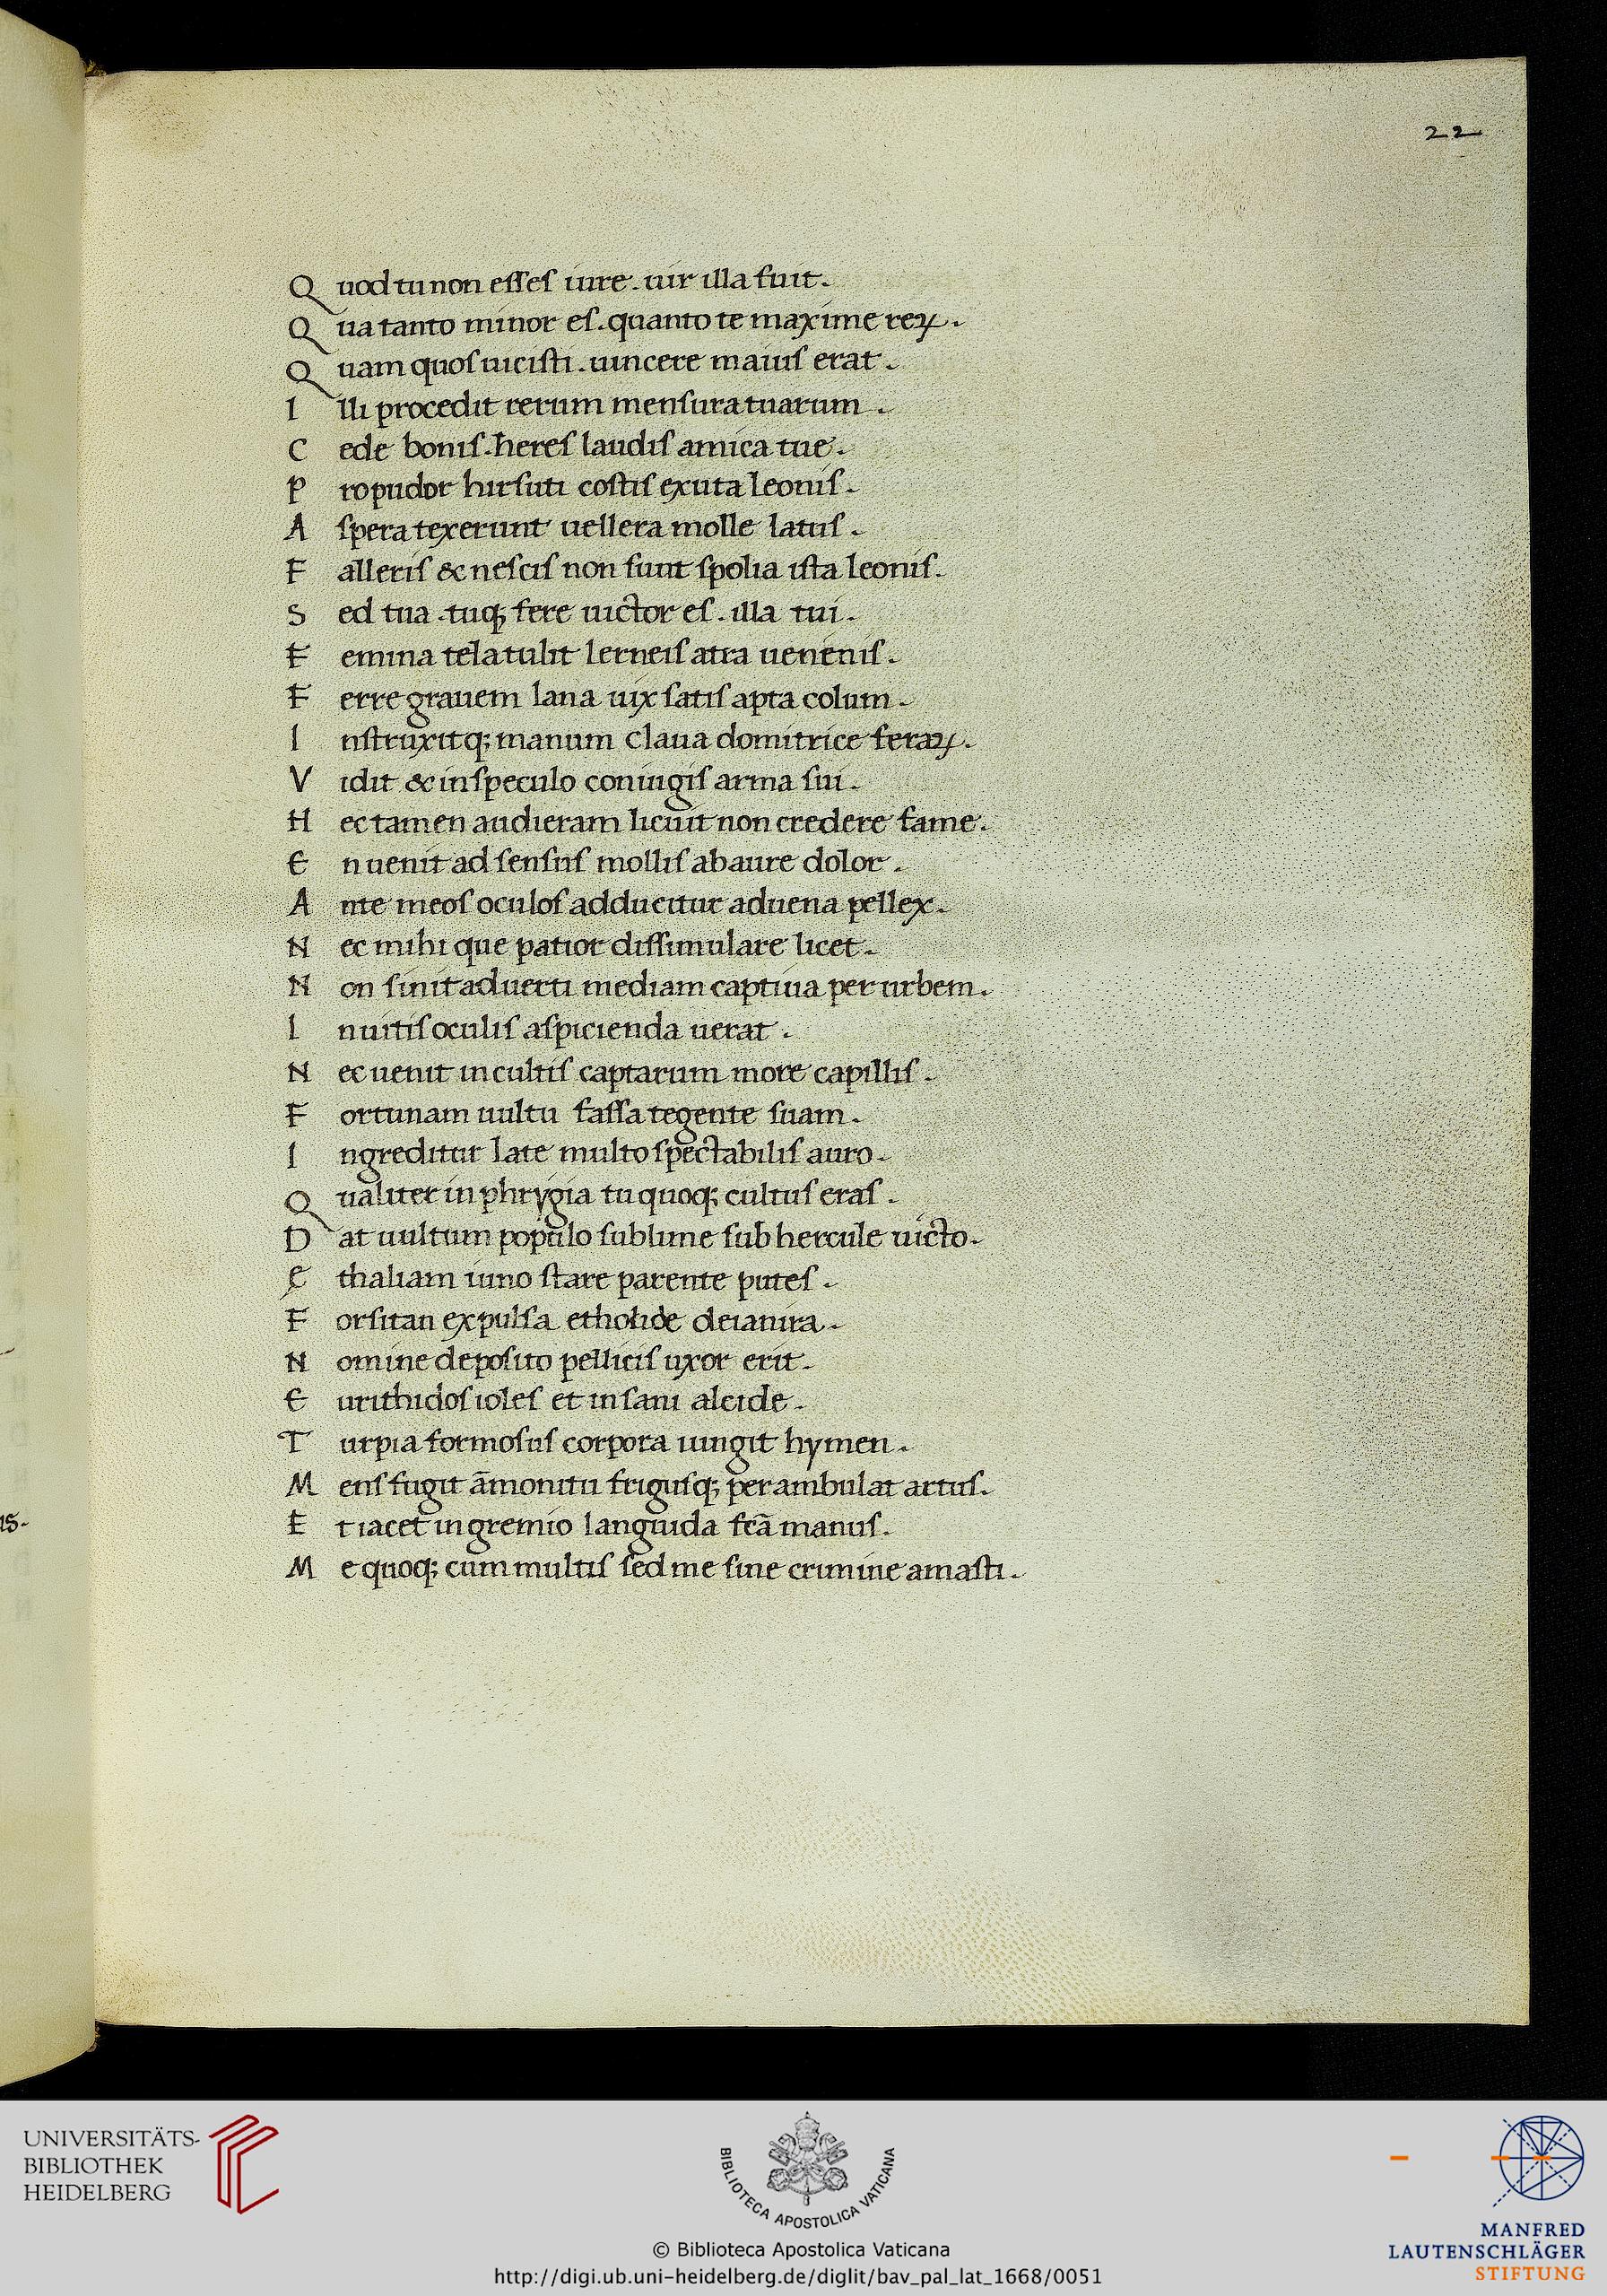 22
Quod tu non eſſeſ iure . uir illa fuit .
Qua tanto minor eſ . quanto te maxime reꝝ .
Quam quoſ uiciſti . uincere maiuſ erat .
Illi procedit rerum menſura tuarum .
Cede boniſ . hereſ laudiſ amica tue .
Pro pudor hirſuti coſtiſ exuta leoniſ .
Aſpera texerunt uellera molle latuſ .
Falleriſ & neſciſ non ſunt ſpolia iſta leoniſ .
Sed tua . tuq; fere uictor eſ . illa tui .
Femina tela tulit lerneiſ atra ueneniſ .
Ferre grauem lana uix ſatiſ apta colum .
Inſtruxitq; manum claua domitrice feraꝝ .
Vidit & in ſpeculo coniugiſ arma ſui .
Hec tamen audieram licuit non credere fame .
En uenit ad ſenſuſ molliſ ab aure dolor .
Ante meoſ oculoſ adducitur aduena pellex .
Nec mihi que patior diſſimulare licet .
Non ſinit aduerti mediam captiua per urbem .
Inuitiſ oculiſ aſpicienda uerat .
Nec uenit incultiſ captarum more capilliſ .
Fortunam uultu faſſa tegente ſuam .
Ingreditur late multo ſpectabiliſ auro .
Qualiter in phrygia tu quoq; cultuſ eraſ .
Dat uultum populo ſublime ſub hercule uicto .
Ethaliam iuno ſtare parente puteſ .
Forſitan expulſa etholide deianira .
Nomine depoſito pelliciſ uxor erit .
Eurithidoſ ioleſ et inſani alcide .
Turpia formoſuſ corpora iungit hymen .
Menſ fugit āmonitu friguſq; perambulat artuſ .
Et iacet in gremio languida fcā manuſ .
Me quoq; cum multiſ ſed me ſine crimine amaſti .
UNIVERSITÄTS-
BIBLIOTHEK
HEIDELBERG
BIBLIOTECA APOSTOLICA VATICANA
© Biblioteca Apostolica Vaticana
http://digi.ub.uni-heidelberg.de/diglit/bav_pal_lat_1668/0051
MANFRED
LAUTENSCHLÄGER
STIFTUNG